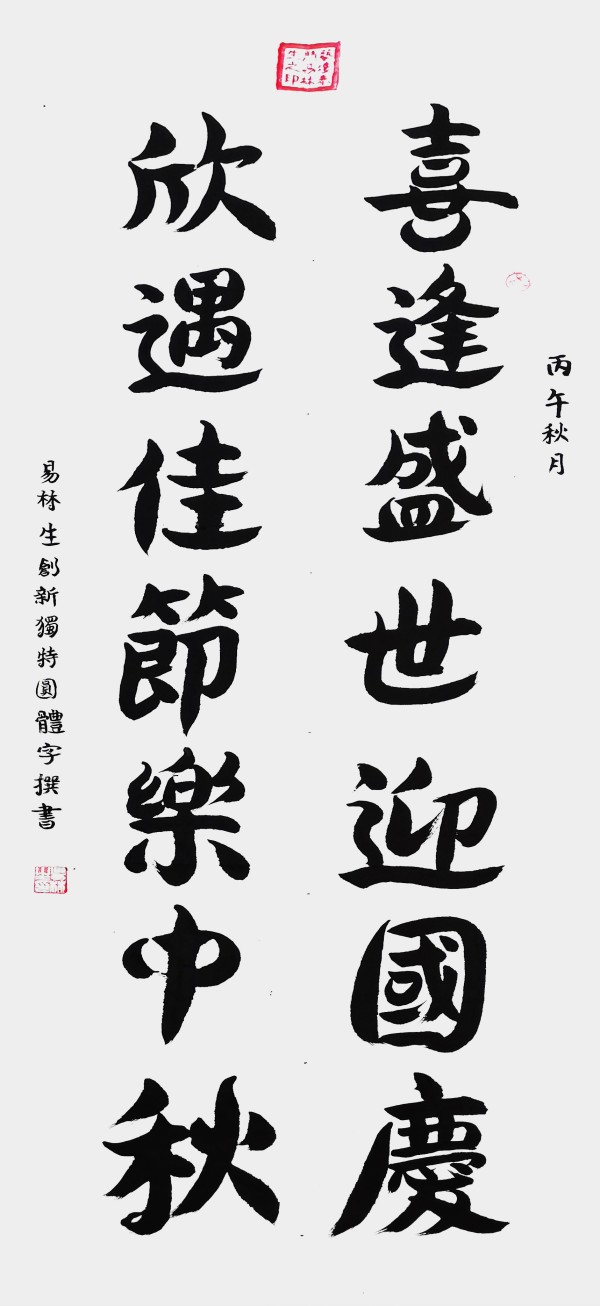 丙午秋月
喜逢盛世迎國慶
欣遇佳節樂中秋
易林生創新獨特圓體字撰書